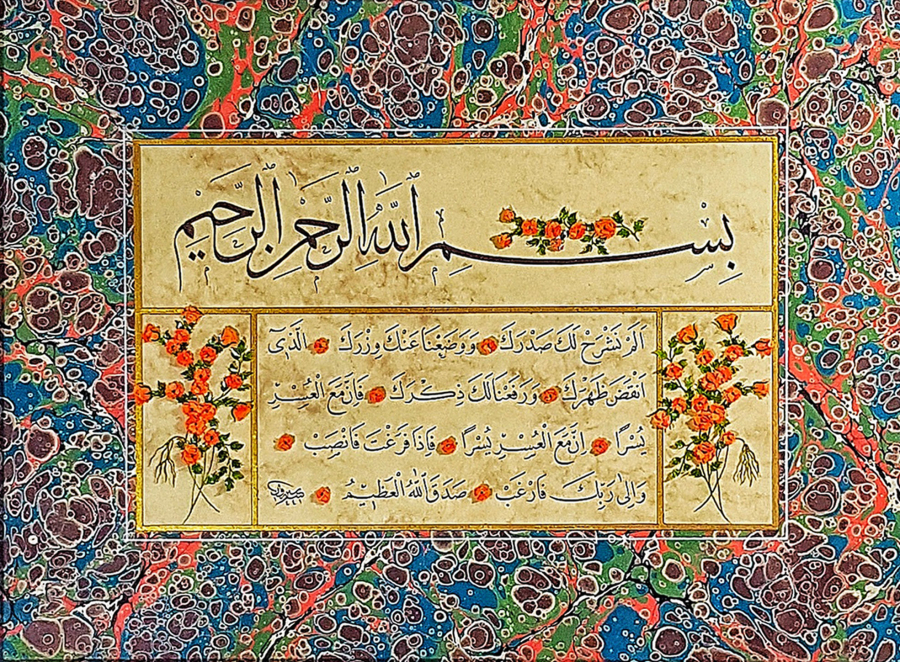 بِسْمِ اللّٰهِ الرَّحْمٰنِ الرَّحِيمِ
اَلَمْ نَشْرَحْ لَكَ صَدْرَكَ وَوَضَعْنَا عَنْكَ وِزْرَكَ اَلَّذٓى
اَنْقَضَ ظَهْرَكَ وَرَفَعْنَا لَكَ ذِكْرَكَ فَاِنَّ مَعَ الْعُسْرِ
يُسْرًا اِنَّ مَعَ الْعُسْرِ يُسْرًا فَاِذَا فَرَغْتَ فَانْصَبْ
وَاِلٰى رَبِّكَ فَارْغَبْ صَدَقَ اللّٰهُ الْعَظِيْمُ